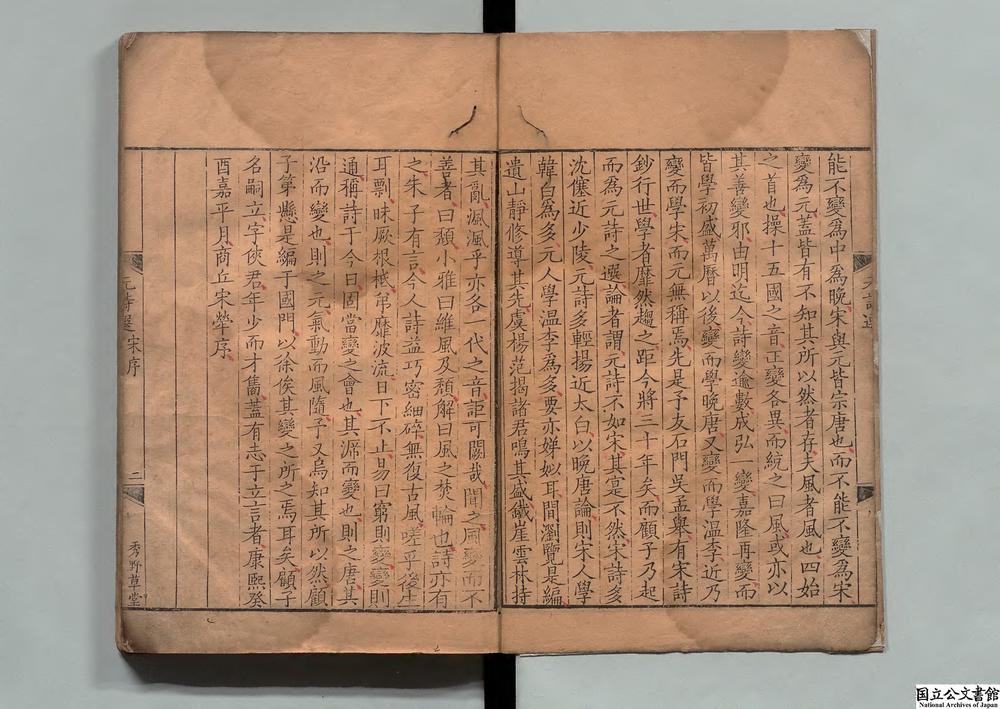 能不變爲中爲晚宋與元皆宗唐也而不能不變爲宋
變爲元蓋皆有不知其所以然者存夫風者風也四始
之首也操十五國之音正變各異而統之曰風或亦以
其善變邪由明迄今詩變逾數成弘一變嘉隆再變而
皆學初盛萬曆以後變而學晚唐又變而學溫李近乃
變而學宋而元無稱焉先是予友石門吳孟舉有宋詩
鈔行世學者靡然趨之距今將三十年矣而顧子乃起
而爲元詩之選論者謂元詩不如宋其寔不然宋詩多
沈僿近少陵元詩多輕揚近太白以晚唐論則宋人學
韓白爲多元人學溫李爲多要亦娣姒耳間瀏覽是編
遺山靜修導其先虞楊范揭諸君鳴其盛鐵崖雲林持
其亂渢渢乎亦各一代之音詎可闕哉聞之風變而不
善者曰頹小雅曰維風及頹解曰風之焚輪也詩亦有
之朱子有言今人詩益巧密細碎無復古風嗟乎後生
耳剽昧厥根柢弟靡波流日下不止易曰窮則變變則
通稱詩于今日固當變之會也其源而變也則之唐其
沿而變也則之元氣動而風隨予又烏知其所以然顧
子第懸是編于國門以徐俟其變之所之焉耳矣顧子
名嗣立字俠君年少而才雋蓋有志于立言者康熙癸
酉嘉平月商丘宋犖序
元詩選
宋序
二
秀野草堂
国立公文書館
National Archives of Japan